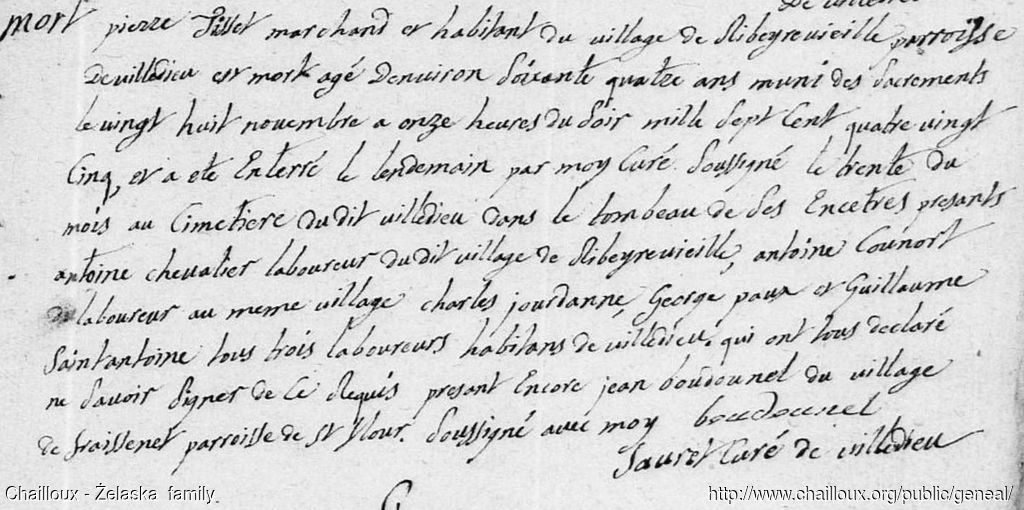 mort pierre Pillet marchand et habitant du village de Ribeyrevieille parroisse
De villedieu est mort agé Denviron Soixante quatre ans muni des Sacrements
le vingt huit novembre a onze heures du Soir mille Sept Cent quatre vingt
Cinq, et a eté Enterré le lendemain par moy Curé Soussigné le trente du
mois au Cimetiere du dit villedieu dans le tombeau de Ses Encetres presants
antoine chevalier laboureur du dit village de Ribeyrevieille, antoine Counort
laboureur au meme village charles jourdanne, George paux et Guillaume
Saintantoine tous trois laboureurs habitans de villedieu. qui ont tous declaré
ne Savoir Signer de Ce Requis presant Encore jean boudounel du village
de fraissenet parroisse de St flour. Soussigné avec moy boudounel
Sauret Curé de villedieu
Chailloux - Żelaska family
http://www.chailloux.org/public/geneal/